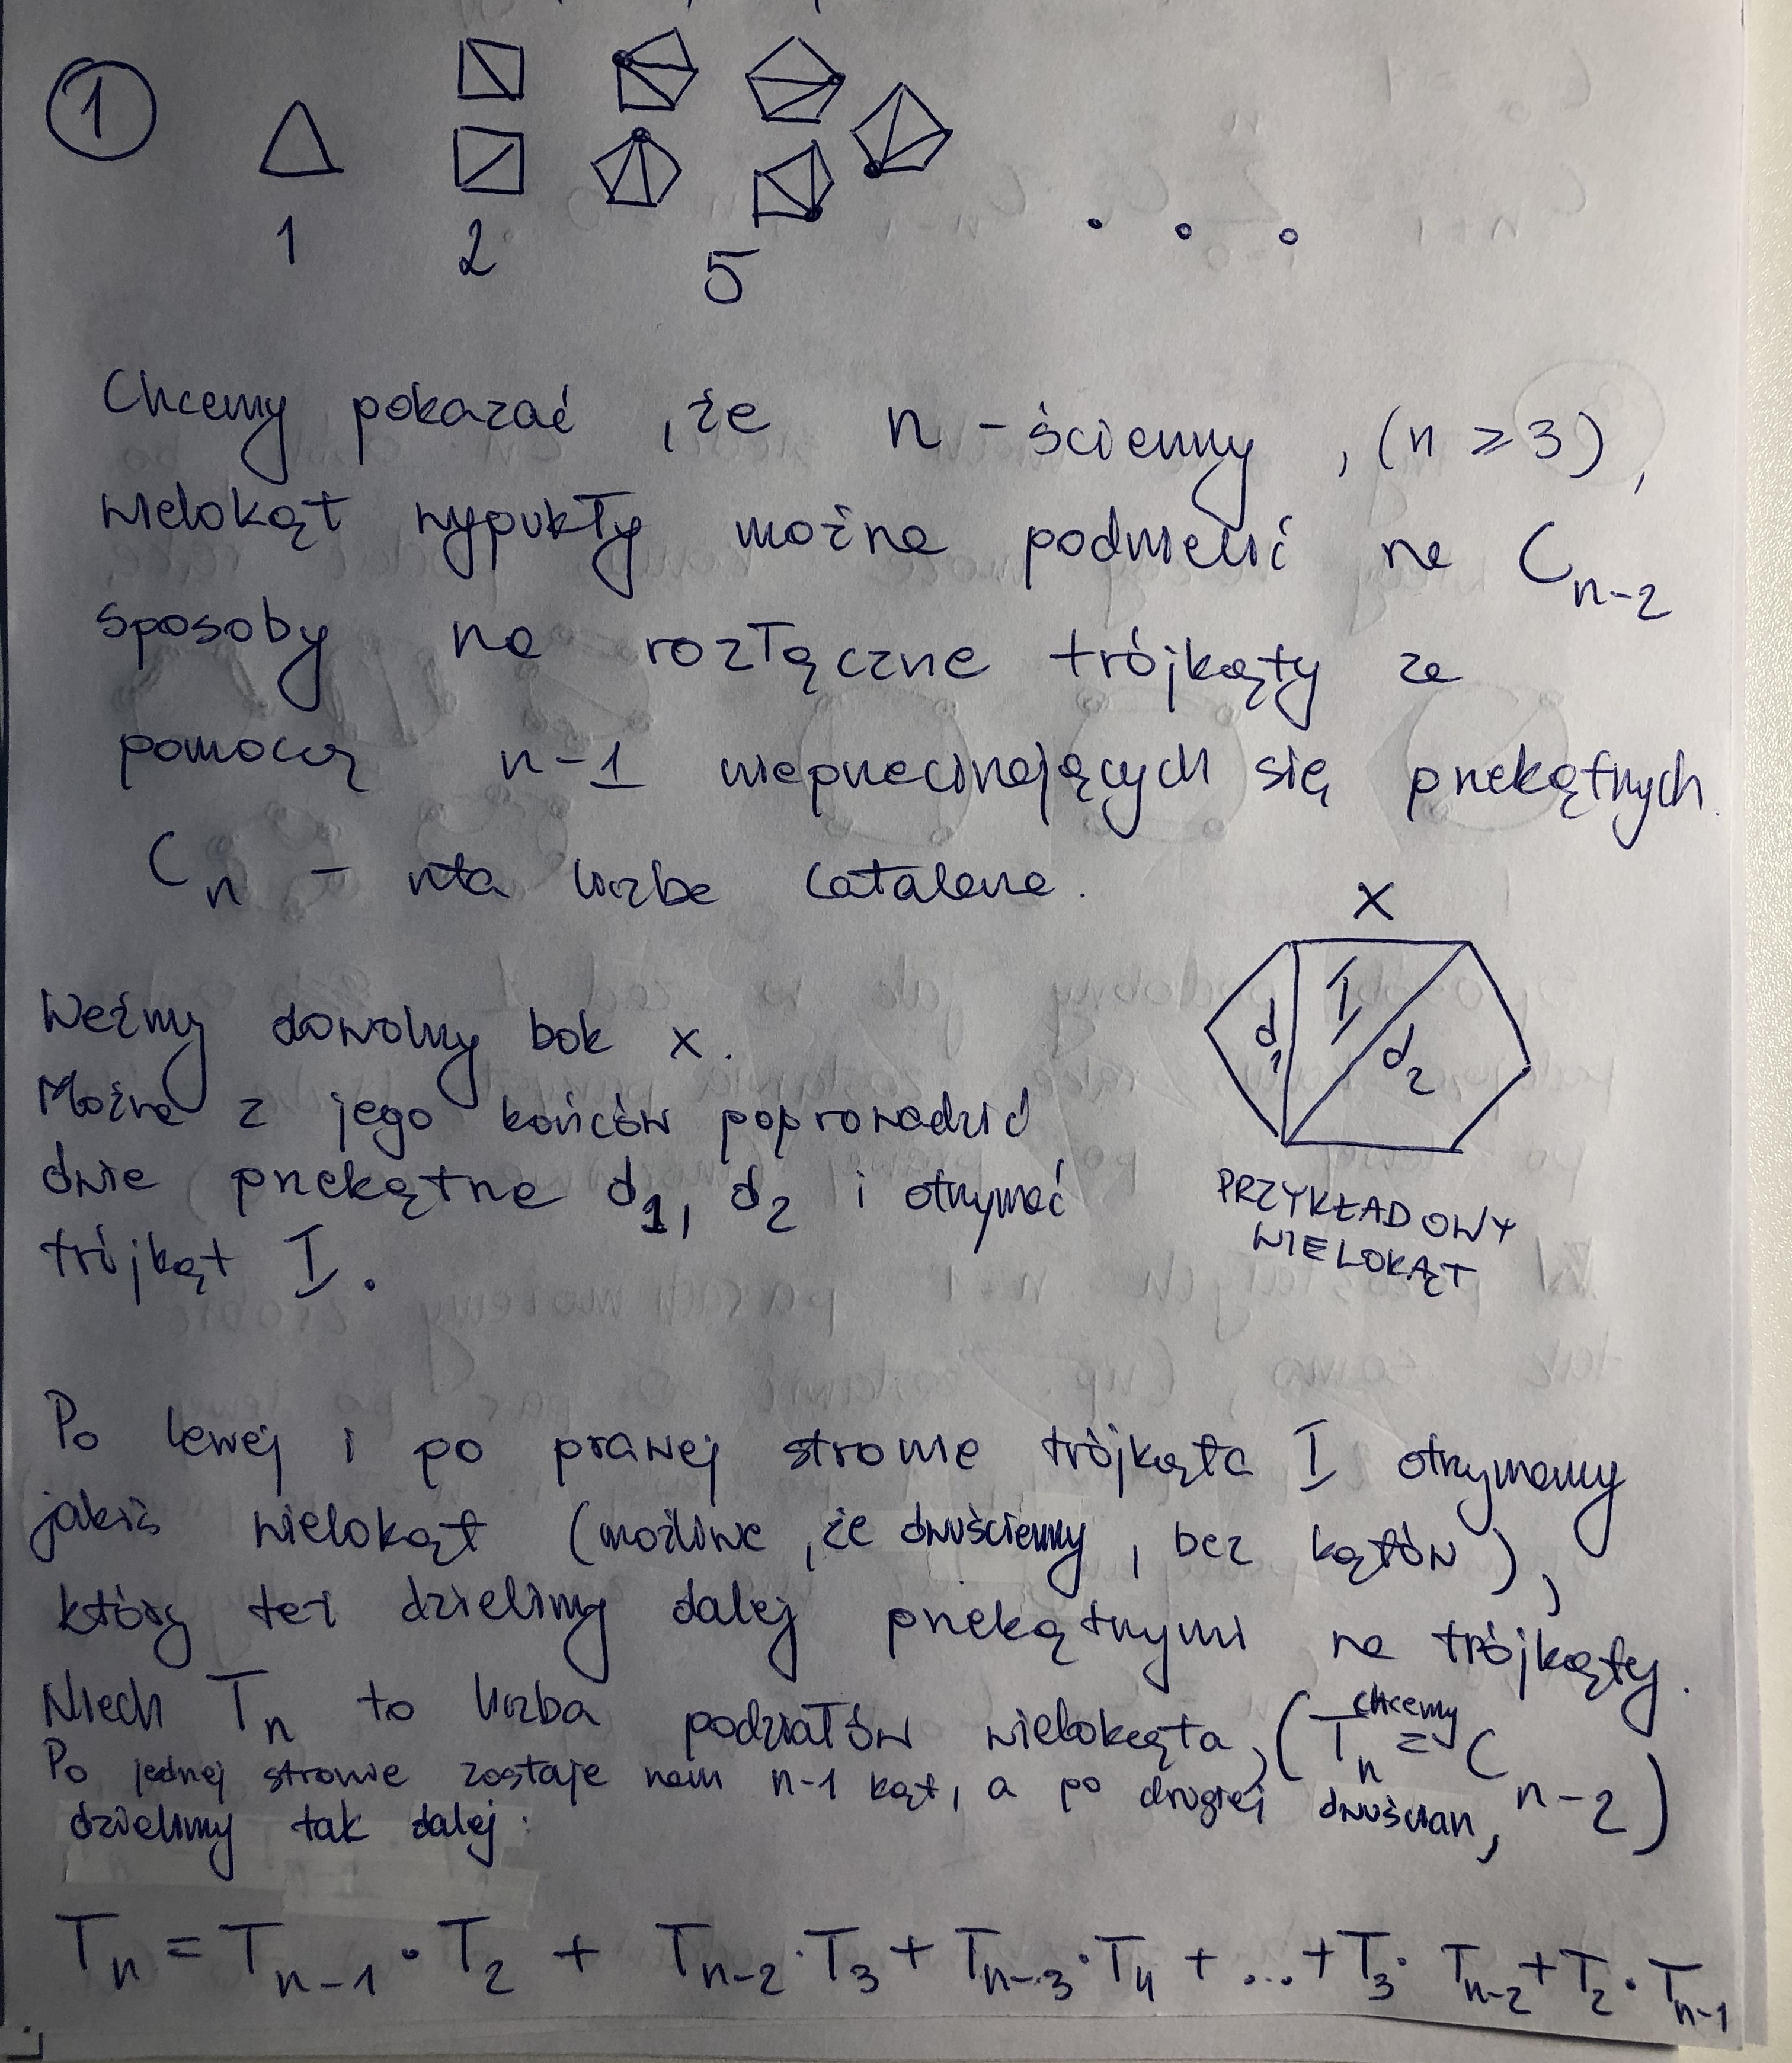 1
1 2 5 . . .
Chcemy pokazać, że n-ścienny, (n ≥ 3),
wielokąt wypukły można podzielić na C_{n-2}
sposoby na rozłączne trójkąty za
pomocą n-1 nieprzecinających się przekątnych.
C_n - nta liczba Catalana.
x
Weźmy dowolny bok x.
Można z jego końców poprowadzić
dwie przekątne d_1, d_2 i otrzymać
trójkąt I.
d_1 I d_2
PRZYKŁADOWY
WIELOKĄT
Po lewej i po prawej stronie trójkąta I otrzymamy
jakiś wielokąt (możliwe, że dwuścienny, bez kątów),
który też dzielimy dalej przekątnymi na trójkąty.
Niech T_n to liczba podziałów wielokąta, (T_n = C_{n-2})
chcemy
Po jednej stronie zostaje nam n-1 kąt, a po drugiej dwuścian,
dzielimy tak dalej:
T_n = T_{n-1} · T_2 + T_{n-2} · T_3 + T_{n-3} · T_4 + ... + T_3 · T_{n-2} + T_2 · T_{n-1}